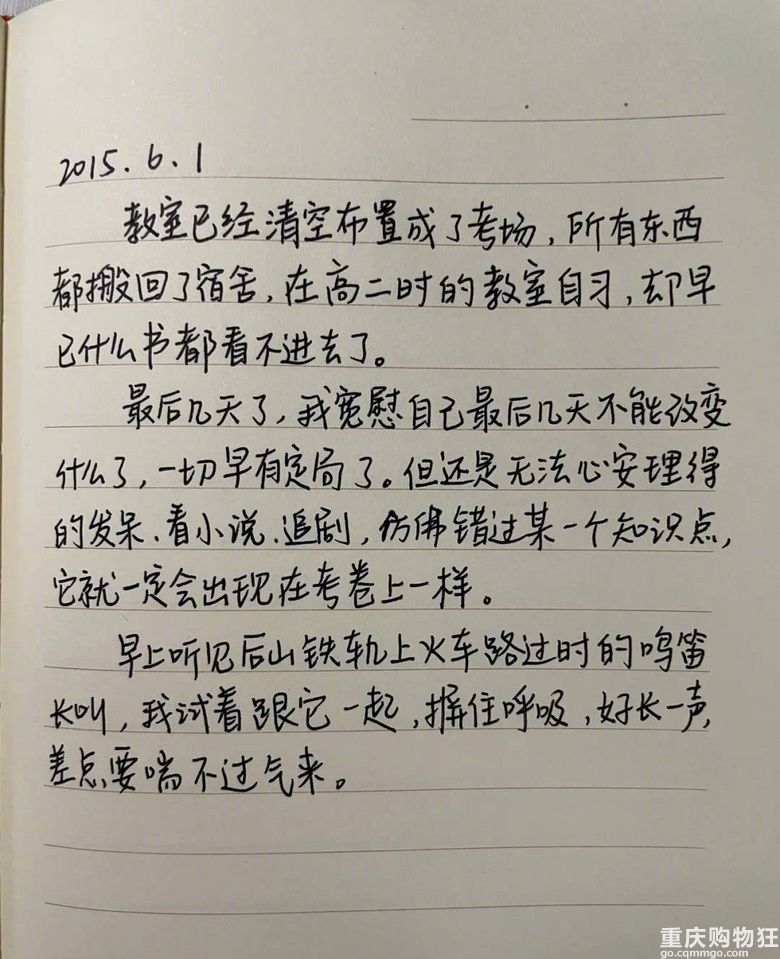 2015.6.1
教室已经清空布置成了考场,所有东西
都搬回了宿舍,在高二时的教室自习,却早
已什么书都看不进去了。
最后几天了,我宽慰自己最后几天不能改变
什么了,一切早有定局了。但还是无法心安理得
的发呆、看小说、追剧,仿佛错过某一个知识点,
它就一定会出现在考卷上一样。
早上听见后山铁轨上火车路过时的鸣笛
长叫,我试着跟它一起,摒住呼吸,好长一声,
差点要喘不过气来。
重庆购物狂
go.cqmmgo.com